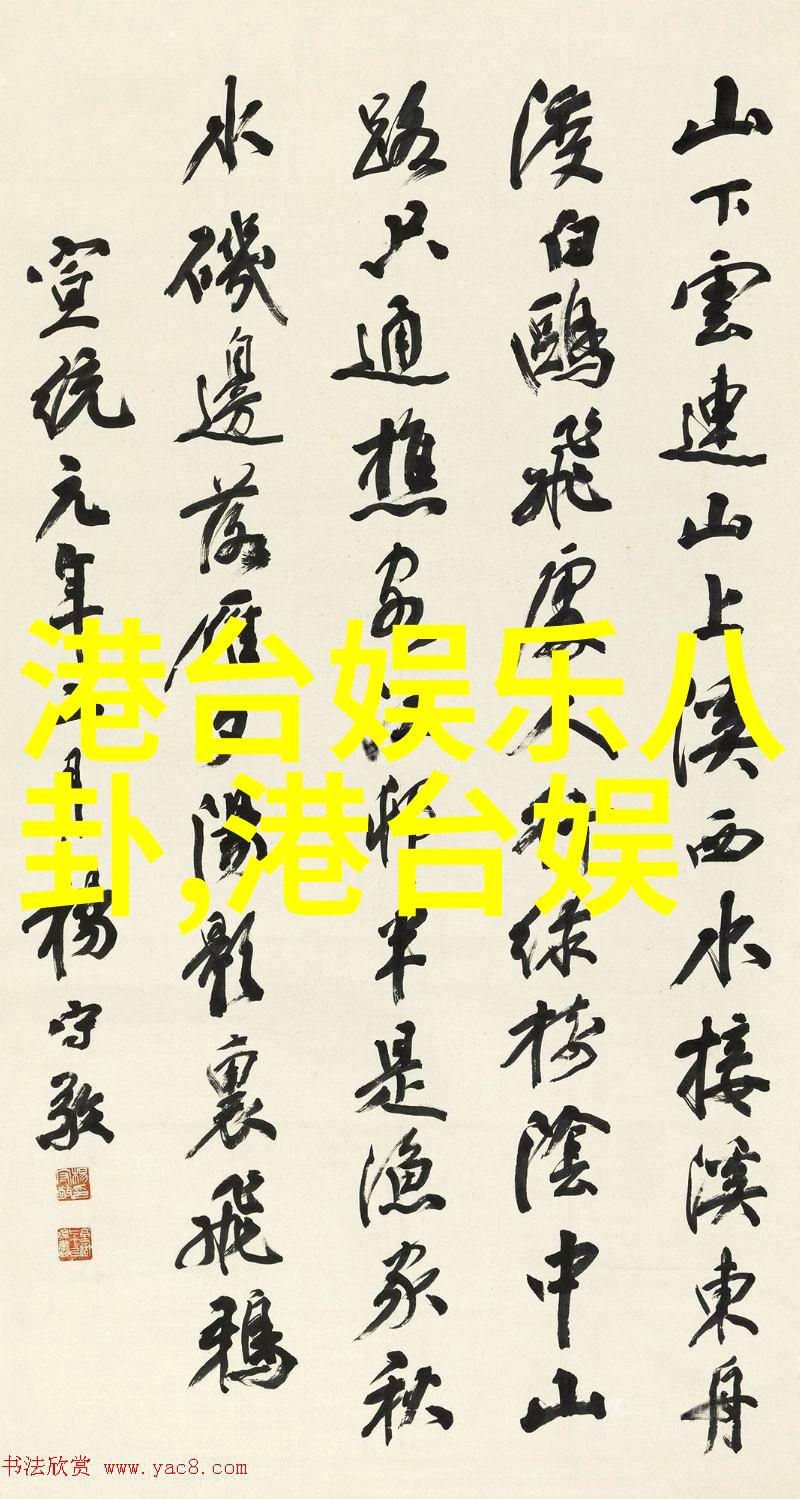 山下雲連山上溪西水接溪東舟
渡白鷗飛處人行綠樹陰中山
路只通樵客江邨半是漁家秋
水磯邊落雁夕陽影裏飛鴉
宣統元年月楊守敬
港台娱乐八
卦,港台娱
书法欣赏 www.yac8.com